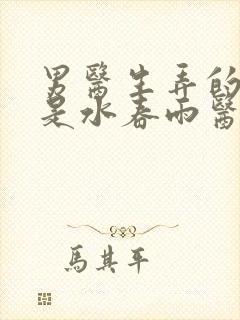 男醫生弄的
是水春雨醫
馬其平